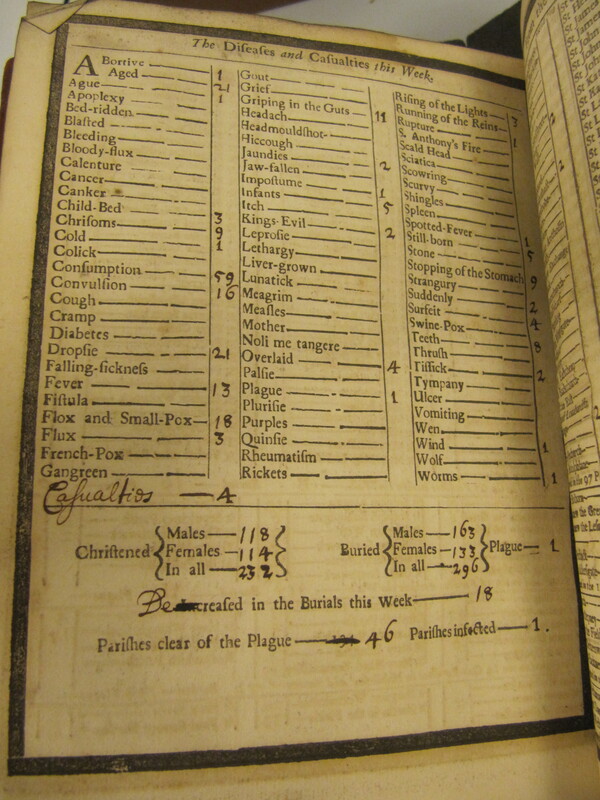 The Diseases and Casualties this Week.
Abortive 1
Aged 21
Ague 1
Apoplexy
Bed-ridden
Blasted
Bleeding
Bloody-flux
Calenture
Cancer
Canker
Child-Bed 3
Chrisoms 9
Cold 1
Colick
Consumption 59
Convulsion 16
Cough
Cramp
Diabetes
Dropsie 21
Falling-sickness
Fever 13
Fistula
Flox and Small-Pox 18
Flux 3
French-Pox
Gangreen
Gout
Grief
Griping in the Guts 11
Headach
Headmouldshot
Hiccough
Jaundies 2
Jaw-fallen
Impostume 1
Infants 5
Itch
Kings-Evil 2
Leprosie
Lethargy
Liver-grown
Lunatick
Meagrim
Measles
Mother
Noli me tangere
Overlaid 4
Palsie
Plague 1
Plurisie
Purples
Quinsie
Rheumatism
Rickets
Rising of the Lights 3
Running of the Reins
Rupture 1
S. Anthony's Fire
Scald Head
Sciatica
Scowring
Scurvy
Shingles
Spleen
Spotted-Fever 1
Still-born 5
Stone
Stopping of the Stomach 9
Strangury
Suddenly 2
Surfeit 4
Swine-Pox
Teeth 8
Thrush
Tissick 2
Tympany
Ulcer
Vomiting
Wen
Wind 1
Wolf
Worms 1
Casualties — 4
Christened { Males — 118
Females — 114
In all — 232 }
Buried { Males — 163
Females — 133
In all — 296 } Plague — 1
Decreased in the Burials this Week — 18
Parishes clear of the Plague — 46 Parishes infected — 1.